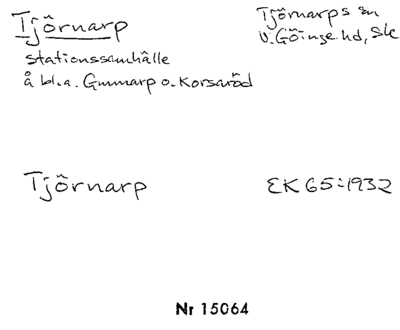 Tjörnarp
Tjörnarps sn
V. Göinge hd, Sk
stationssamhälle
å bl.a. Gunnarp o. Korsaröd
Tjörnarp
EK 65:1932
Nr 15064